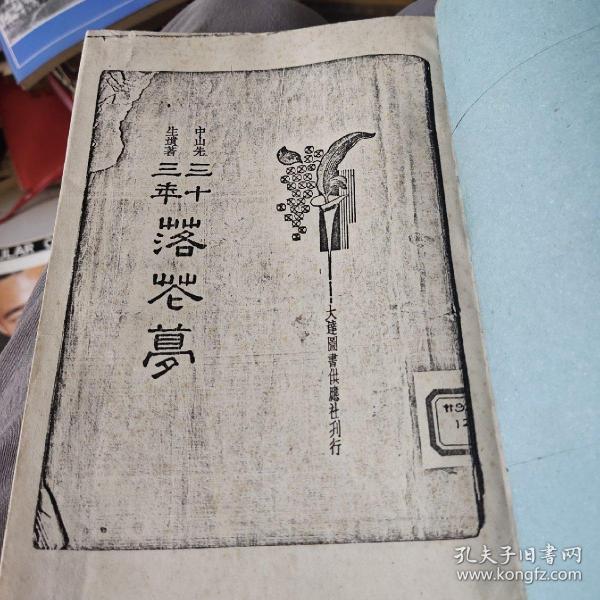 中山先
生遗著
三十
三年
落花夢
大達圖書供應社刊行
孔夫子旧书网
www.kongfz.com